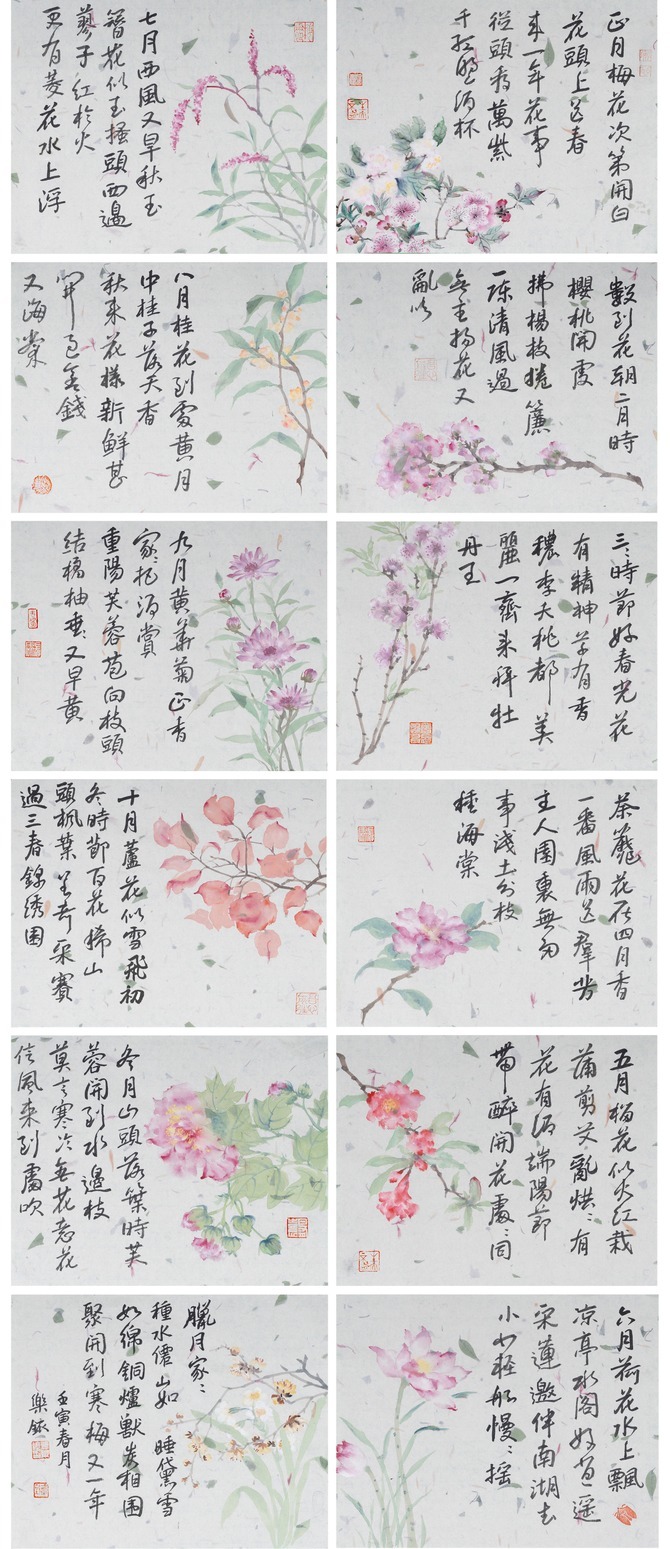 正月梅花次第開白
花頭上送春
來一年花事
從頭看萬紫
千紅照酒杯
數到花朝二月時
櫻桃開處
拂楊枝捲簾
一陣清風過
無主楊花又
亂吹
三〻時節好春光花
有精神草有香
穠李夭桃都美
麗一齊來拜牡
丹王
荼蘼花在四月香
一番風雨送群芳
主人園裏無多
事淺土分枝
種海棠
五月榴花似火紅栽
蒲剪艾亂烘〻有
花有酒端陽節
帶醉開花處〻同
六月荷花水上飄
涼亭水閣好逍遥
采蓮邀伴南湖去
小小輕船慢〻搖
七月西風又早秋玉
簪花似玉搔頭西邊
蓼子紅於火
更有菱花水上浮
八月桂花到處黄月
中桂子落天香
秋來花樣新鮮甚
開過金錢
又海棠
九月黄華菊正香
家〻把酒賞
重陽芙蓉苞向枝頭
結橘柚垂〻又早黄
十月蘆花似雪飛初
冬時節百花稀山
頭楓葉呈奇采賽
過三春錦绣圍
冬月山頭落葉時芙
蓉開到水邊枝
莫言寒冷無花意花
信風來到處吹
臘月家〻
種水僊山如睡黛雪
如綿銅爐獸炭相圍
聚開到寒梅又一年
壬寅春月